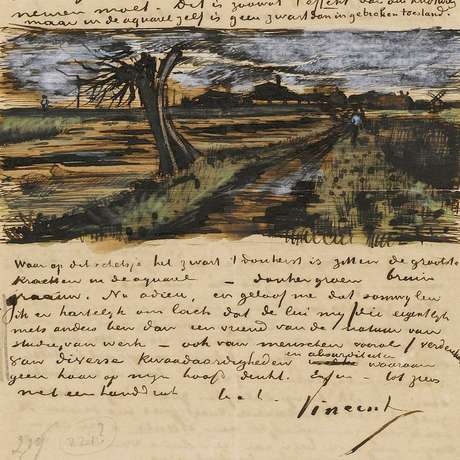 moet. Dit is zoowat 't effekt van
maar in de aquarel zelf is geen zwart dan in gebroken toestand.
Waar op dit schetsje het zwart 't donkerst is zitten de grootste
krachten in de aquarel – donkergroen bruin
graauw. Nu adieu, en geloof me dat somwijlen
ik er hartelijk om lach dat de lui mij (die eigenlijk
niets anders ben dan een vriend van de natuur van
studie van werk – ook van menschen vooral) verdenke
van diverse kwaadaardigheden en absurditeiten waaraan
geen haar op mijn hoofd denkt. Enfin – tot ziens
met een handdruk t.à.t.
Vincent